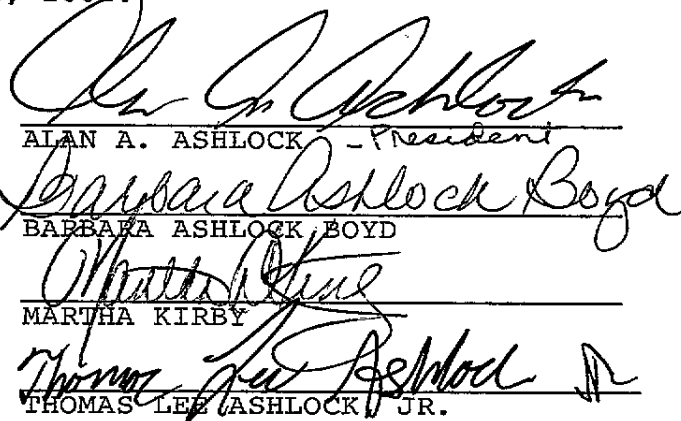 Alan A. Ashlock
ALAN A. ASHLOCK - President
Barbara Ashlock Boyd
BARBARA ASHLOCK BOYD
Martha Kirby
MARTHA KIRBY
Thomas Lee Ashlock Jr
THOMAS LEE ASHLOCK, JR.